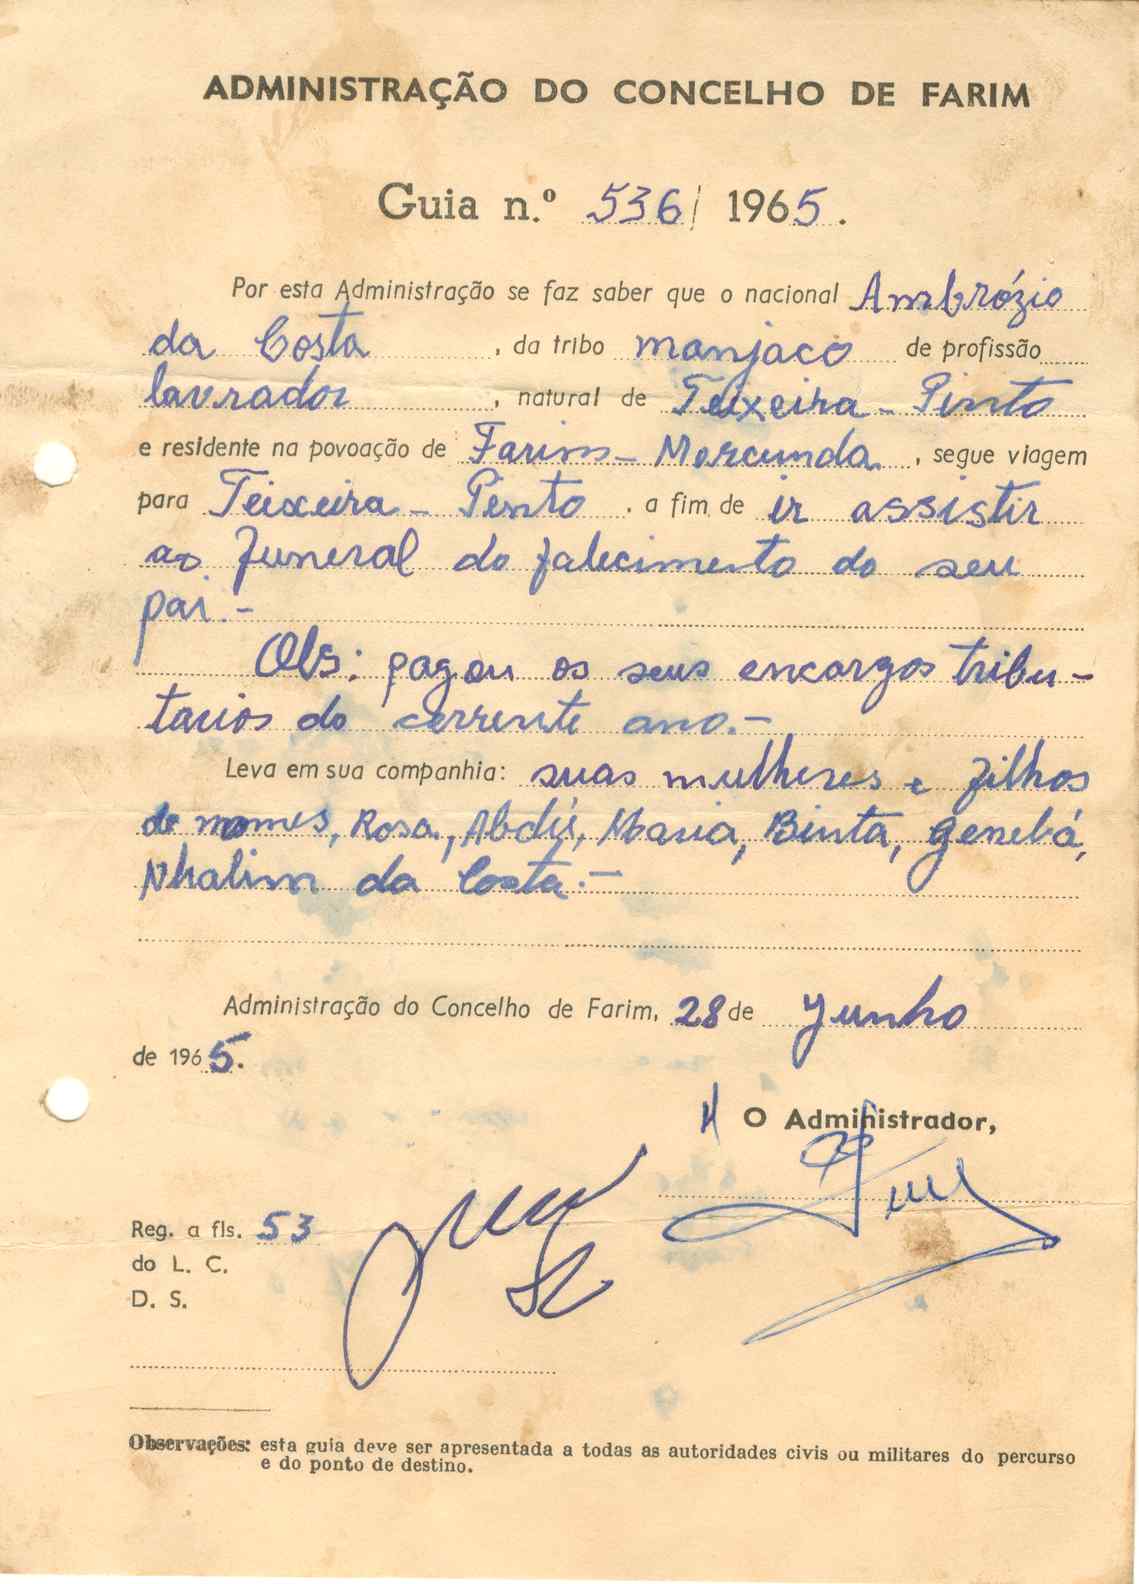 ADMINISTRAÇÃO DO CONCELHO DE FARIM
Guia n.º 536/ 1965.
Por esta Administração se faz saber que o nacional Ambrózio
da Costa, da tribo manjaco de profissão
lavrador, natural de Teixeira - Pinto
e residente na povoação de Farim - Morcunda, segue viagem
para Teixeira - Pinto, a fim de ir assistir
ao funeral do falecimento do seu
pai.-
Obs: pagou os seus encargos tribu-
tarios do corrente ano.-
Leva em sua companhia: suas mulheres e filhos
de nomes, Rosa, Abdú, Maria, Binta, Genebá,
Nhalim da Costa.-
Administração do Concelho de Farim, 28 de Junho
de 1965.
O Administrador,
Reg. a fls. 53
do L. C.
D. S.
Observações: esta guia deve ser apresentada a todas as autoridades civis ou militares do percurso
e do ponto de destino.